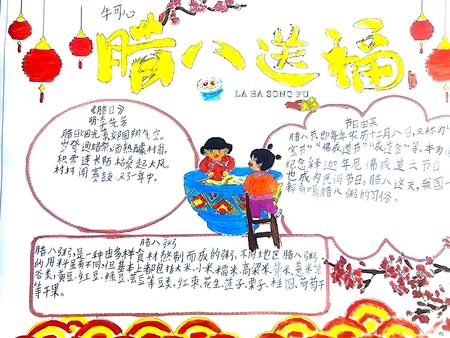 牛可心
腊八送福
LA BA SONG FU
《腊日》
明·李先芳
腊日烟光薄,郊园朔气空。
岁登通蜡祭,酒熟醵村翁。
积雪连长陌,枯桑起大风
村村闻赛鼓,又了一年中。
节日由来
腊八节,即每年农历十二月八日,又称为
宝节""佛成道节""成道会"等,本为
纪念释迦牟尼佛成道之节日
也成为民间节日,腊八这天,我国
都有喝腊八粥的习俗。
腊八粥
腊八粥,是一种由多样食材熬制而成的粥,不同地区腊八
的用料虽有不同,但基本上都包括大米、小米、糯米、高粱米、紫米、薏米等
谷类,黄豆、红豆、绿豆、芸豆等豆类,红枣、花生、莲子、栗子、桂圆、葡萄干
等干果。